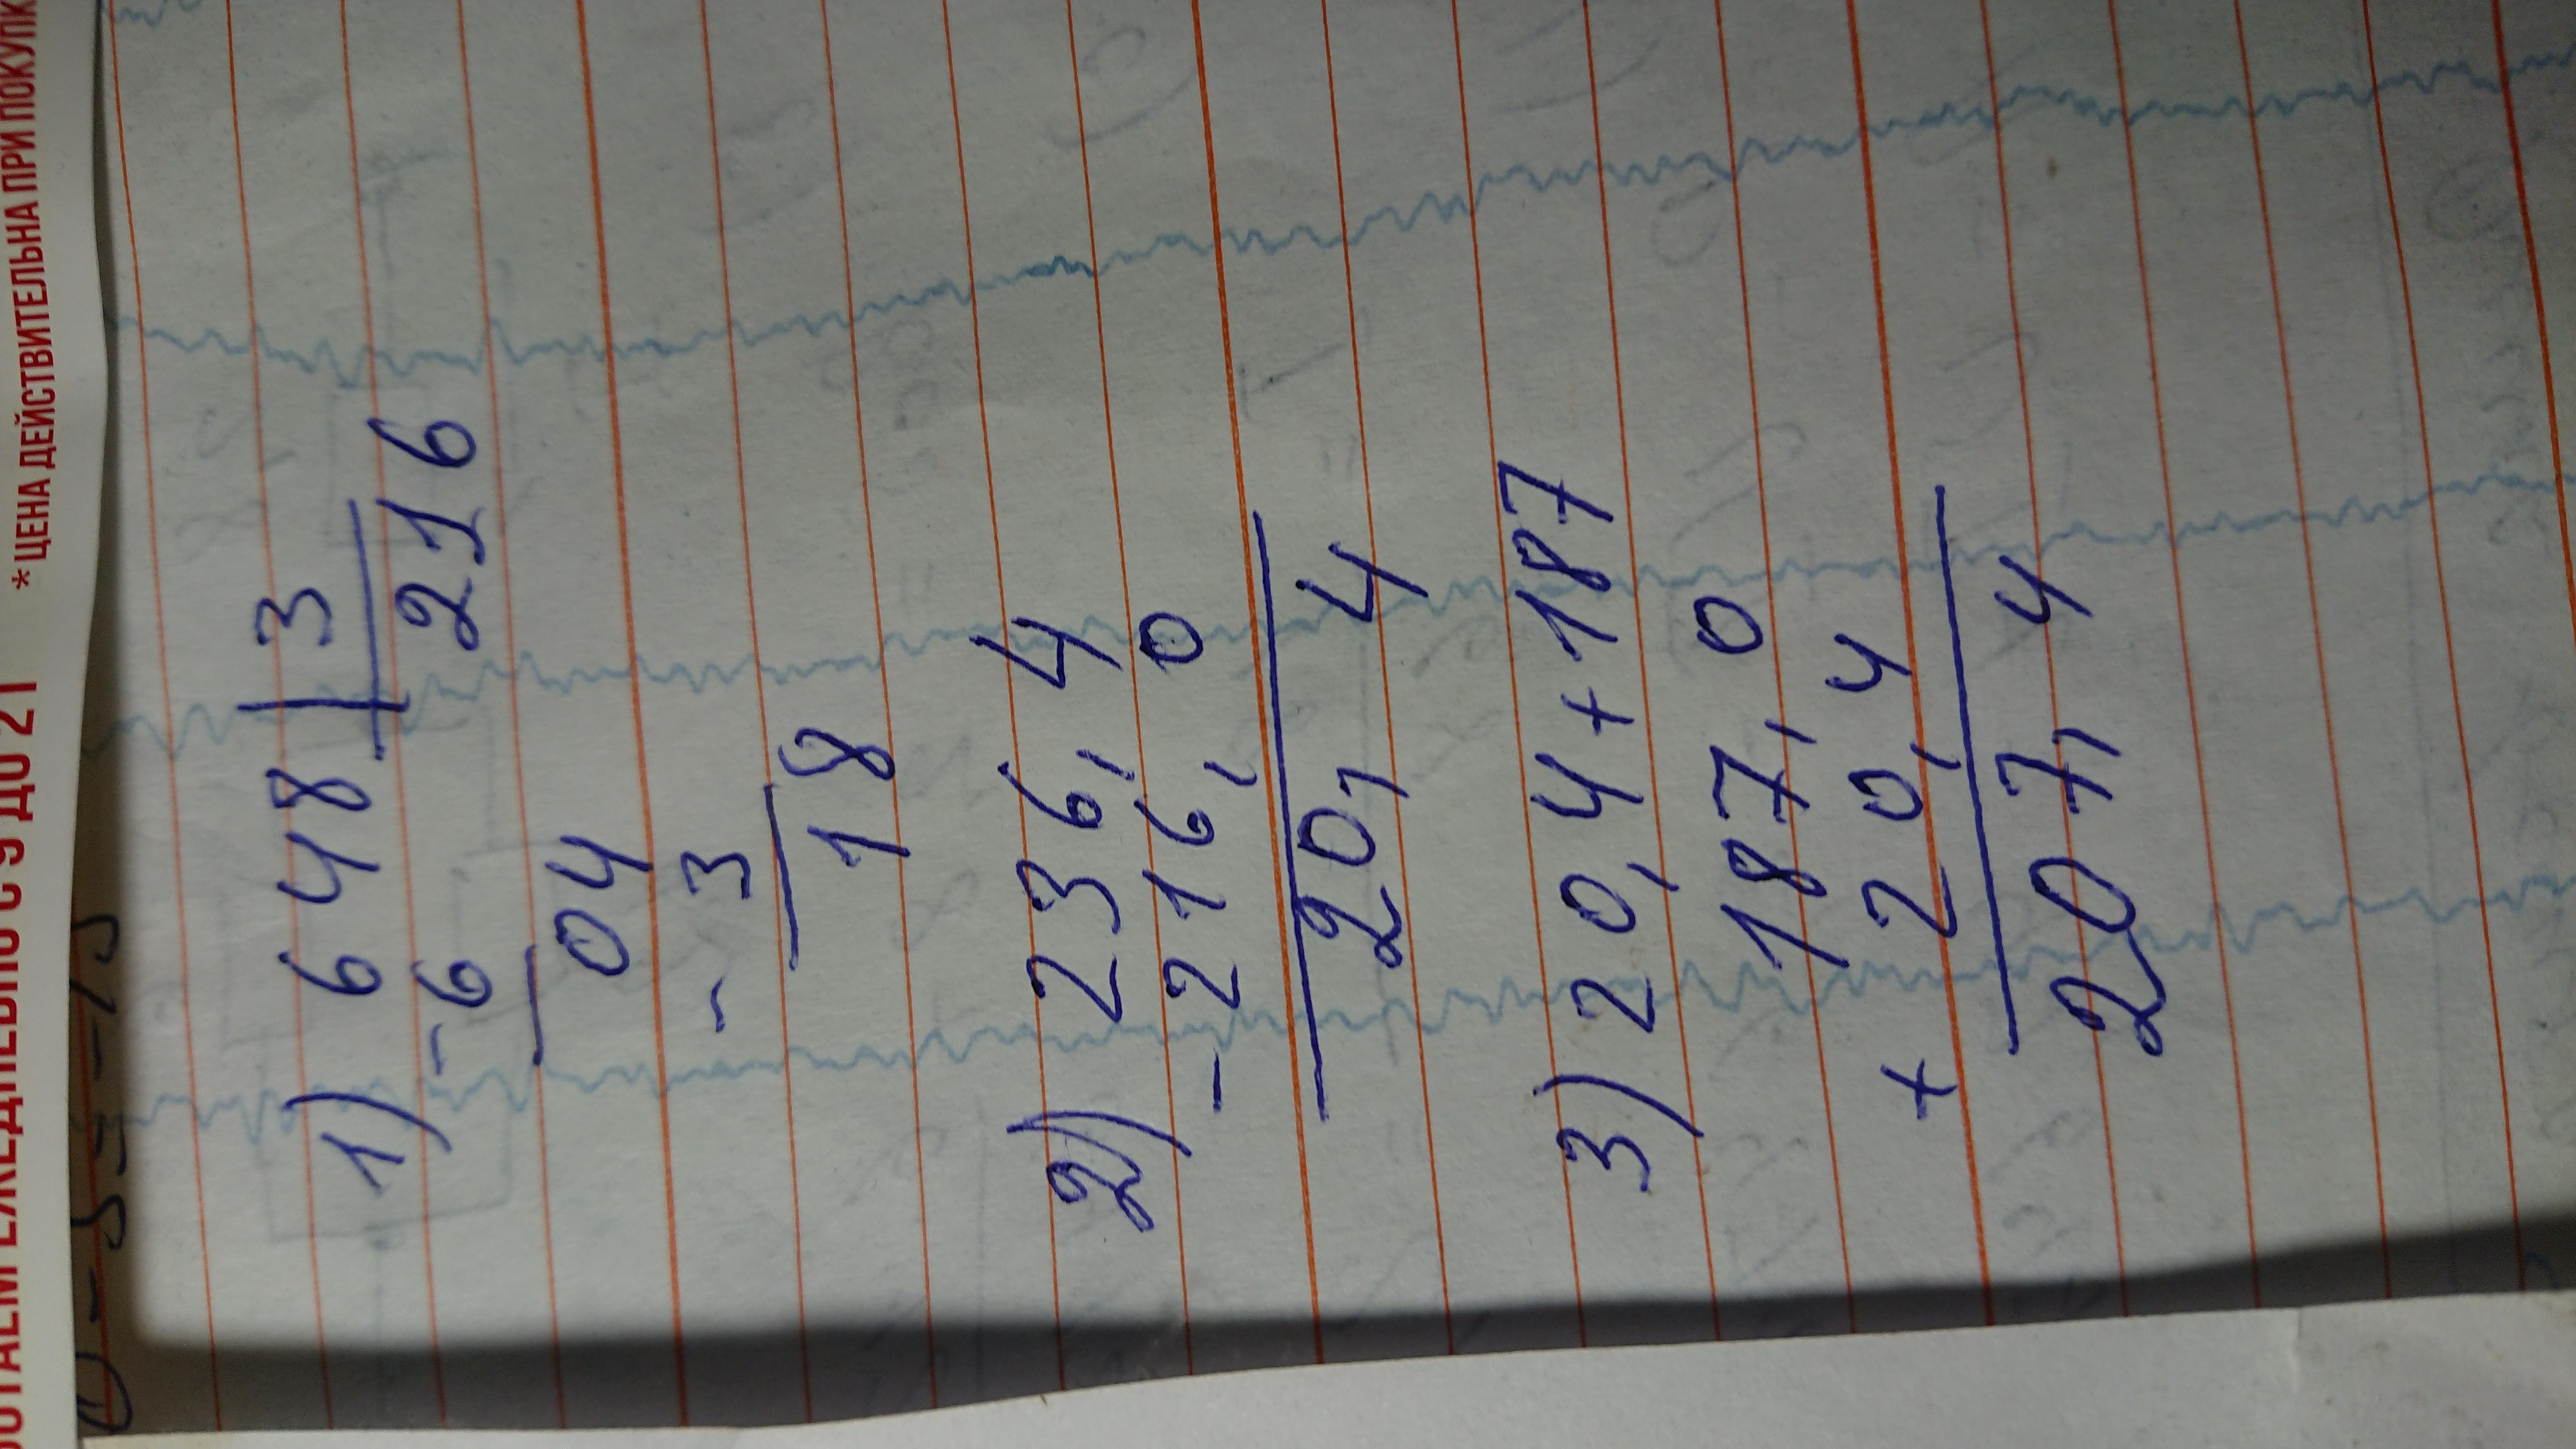 *ЦЕНА ДЕЙСТВИТЕЛЬНА ПРИ ПОКУПК
ЕЖЕДНЕВНО С 9 ДО 21
1) 648 | 3
- 6 216
04
- 3
18
2) 236,4
- 216,0
20,4
3) 20,4 + 187
187,0
+ 20,4
207,4